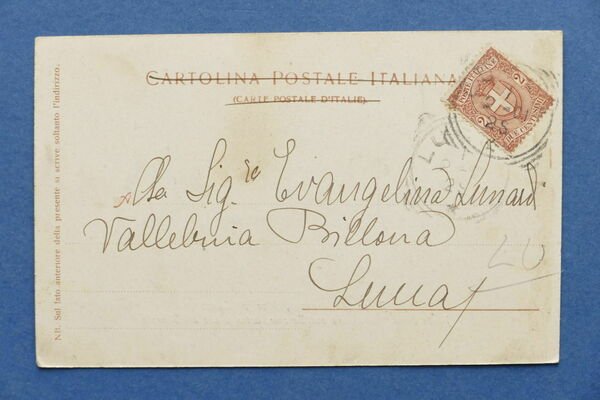 CARTOLINA POSTALE ITALIANA
(CARTE POSTALE D'ITALIE)
POSTE ITALIANE
2 2
DUE CENTESIMI
Alla Sig.ra Evangelina Lunardi
Vallebuia Billona
Lucca
LU
NB. Sul lato anteriore della presente si scrive soltanto l'indirizzo.